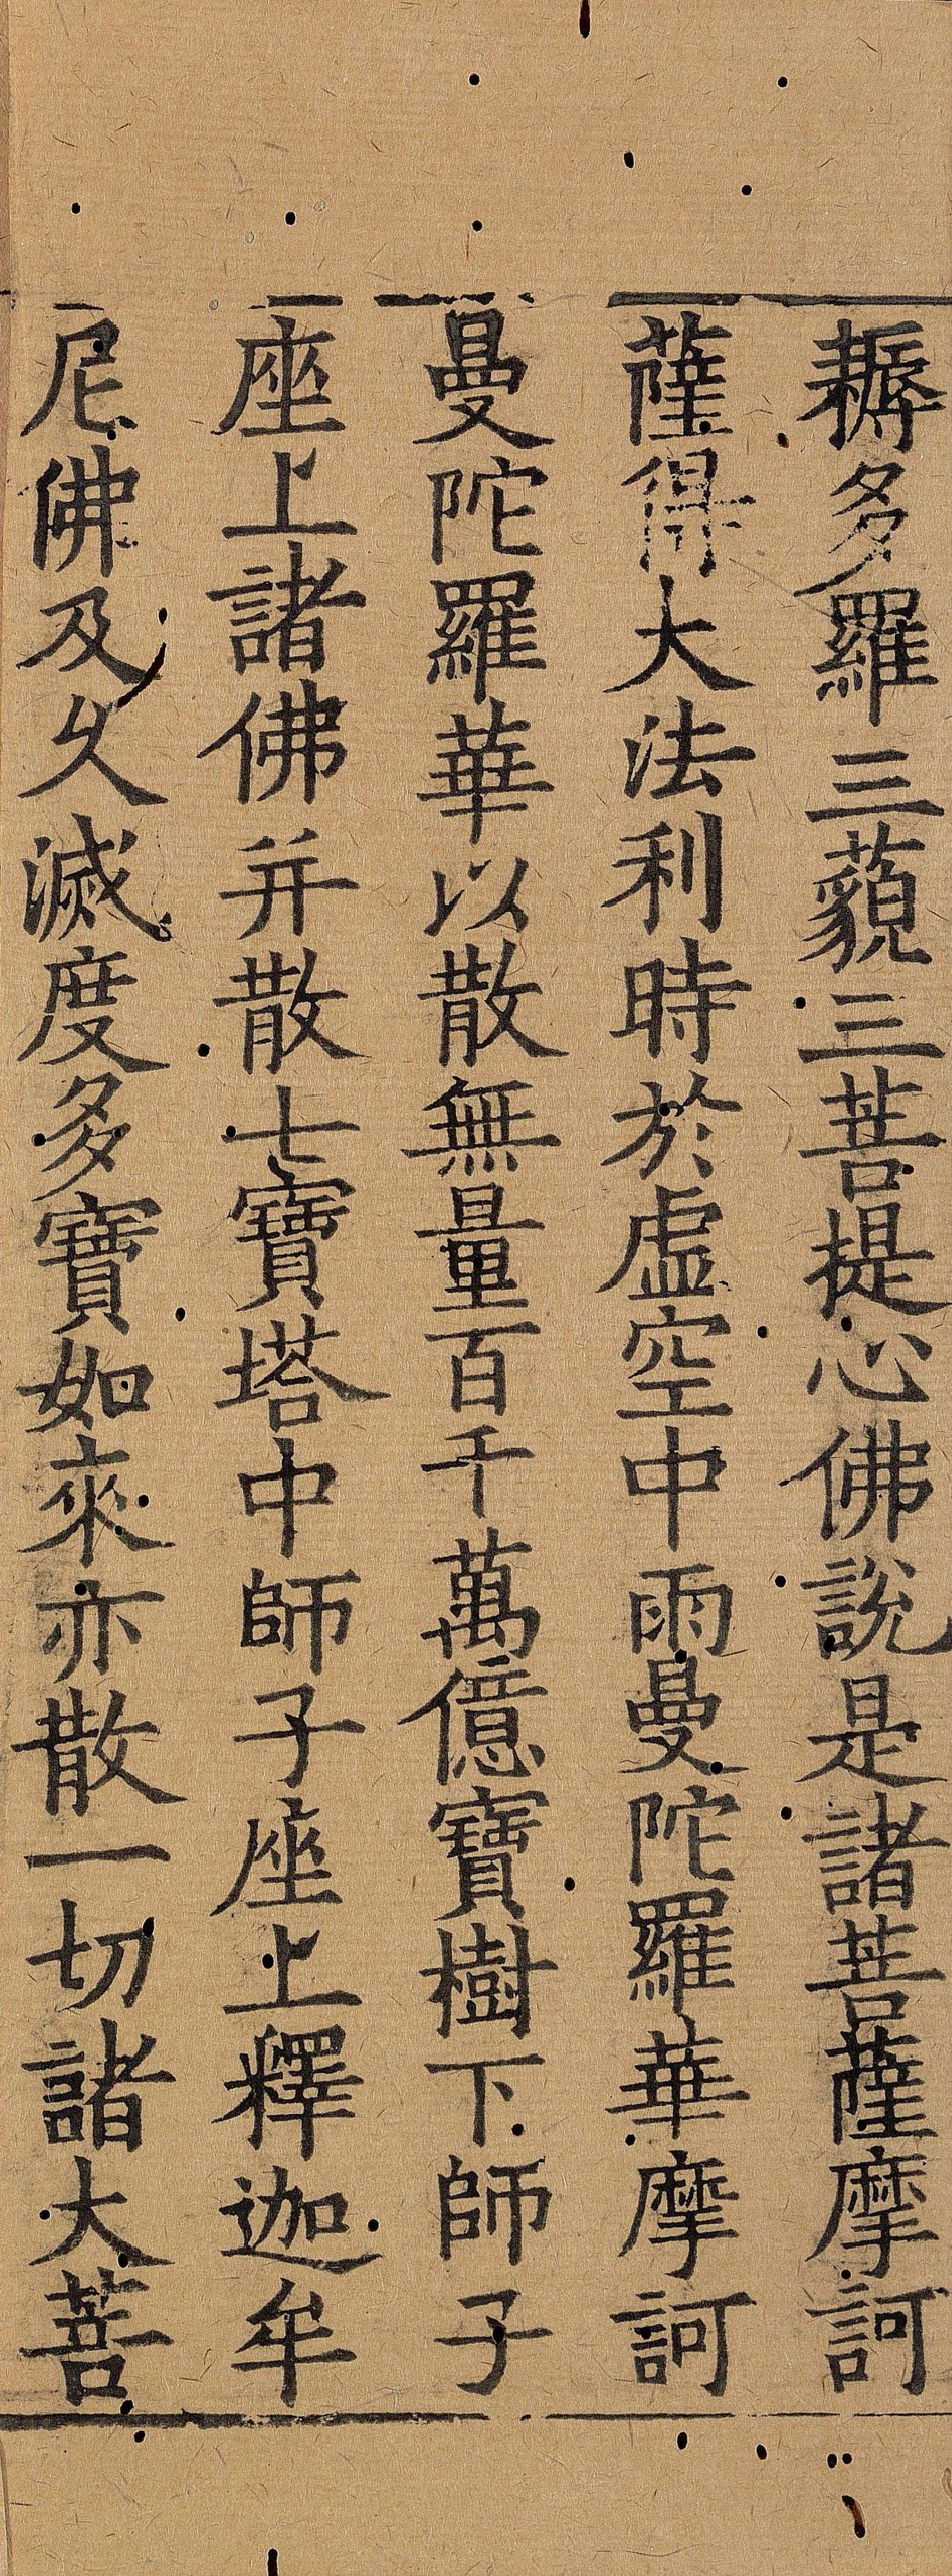 耨多羅三藐三菩提心佛說是諸菩薩摩訶
薩得大法利時於虛空中雨曼陀羅華摩訶
曼陀羅華以散無量百千萬億寶樹下師子
座上諸佛并散七寶塔中師子座上釋迦牟
尼佛及久滅度多寶如來亦散一切諸大菩